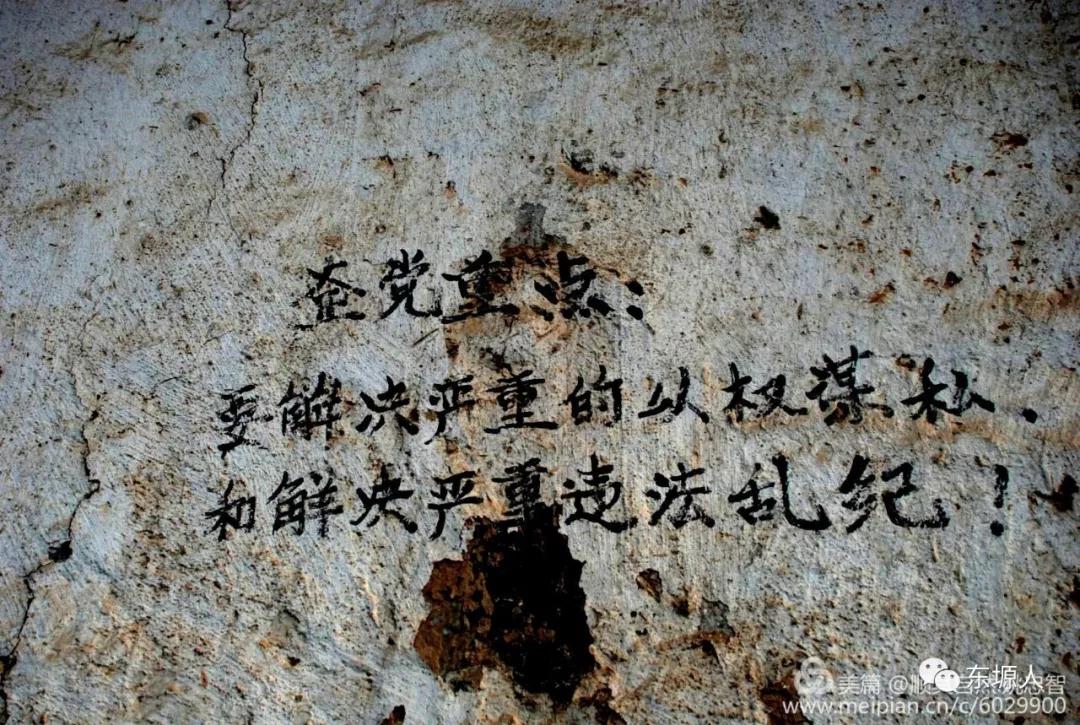 峜党重点：
要解决严重的以权谋私、
和解决严重违法乱纪！
东塬人
美篇
www.meipian.cn/c/6029900